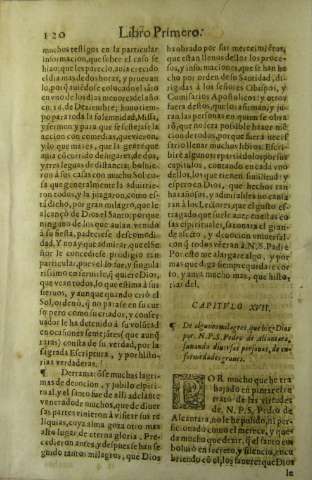 120
Libro Primero.
muchos testigos en la particular
informacion, que sobre el caso se
hizo: que les parecio, auia crecido
el dia mas de dos horas, y prueuan
lo, porq auiédose colocado el sáto
en vno de los dias menores del año
en 18. de Deziembre; huuo tiem-
po para toda la solemnidad, Missa,
y sermon, y para que se hiziesse la
accion con comodidad, que vieron,
y lo que mas es, que la gente que
auia cócurrido de lugares, de dos,
y tres leguas de distancia; boluie-
ron a sus casas con mucho Sol: co-
sa que generalmente la aduirtie-
ron todos, y la juzgaron, como es-
tá dicho, por gran milagro, que le al-
cançò de Dios el Santo: porque
ninguno de los que auian venido
á su fiesta, padeciesse descomodi-
dad. Y no ay que admirar, que el Se-
ñor le concediesse prodigio tan
particular, pues el lo fue, y singula-
rissimo en seruirle, q quiere Dios,
que vean todos, lo que estima à sus
sieruos, y aunque quando criò el
Sol, ordenò, q no parase en su cur-
so; pero como su criador, y conser-
uador le ha detenido á su volũtad
en ocasiones semejátes (que aunq
raras) consta de su verdad, por la
sagrada Escriptura, y por histo-
rias verdaderas.
¶ Derramaróse muchas lagri-
mas de deuocion, y jubilo espiri-
tual, y el santo fue de alli adelante
venerado de modo, que de diuer-
sas partes vinieron à visitar sus re-
liquias, cuya alma goza otro mas
alto lugar, de eterna gloria. Pre-
cedieron antes, y despues se han se-
guido tantos milagros, que Dios
ha obrado por sus merecimiétos,
que están llenos dellos los proces-
sos, y informaciones, que se han he
cho por orden de su Santidad, di-
rigidas à los señores Obispos, y
Comissarios Apostolicos: y otros
fuera destos, que los afirman, y ju-
ran las personas en quien se obra-
rõ, que no fuera posible hazer mé-
cion de todos, porque fuera menes-
ter llenar muchos libros. Escri-
biré algunos repartidos por sus
capitulos, contando en cada vno
dellos, los que tienen similitud: y
espero en Dios, que hechos tan
hazañosos, y admirables no cansa-
ràn à los Lectores, que el gusto es-
tragado, que suele auer en estas co-
sas espirituales, se à contra el gran-
de afecto, y deuocion vniuersal
con q todos veneran à N. S. Padre
Por esto me alargarè algo, y por
mas que diga siempre quedarè cor-
to, y aura mucho mas, que histo-
riar del.
CAPITVLO XVII.
¶ De algunos milagros, que hizo Dios
por N. P. S. Pedro de Alcantara,
sanando diuersas personas, de en-
fermedades graues.
POR mucho que he tra
bajado en pintar el re
trato de las virtudes
de N. P. S. Pedro de
Alcantara, no le he pulido, ni per-
ficionado como el merece, y que-
da mucho que dezir, q el santo em
boluiò en secreto, y silencio, encu
briendo có el, los fauores que Dios
le